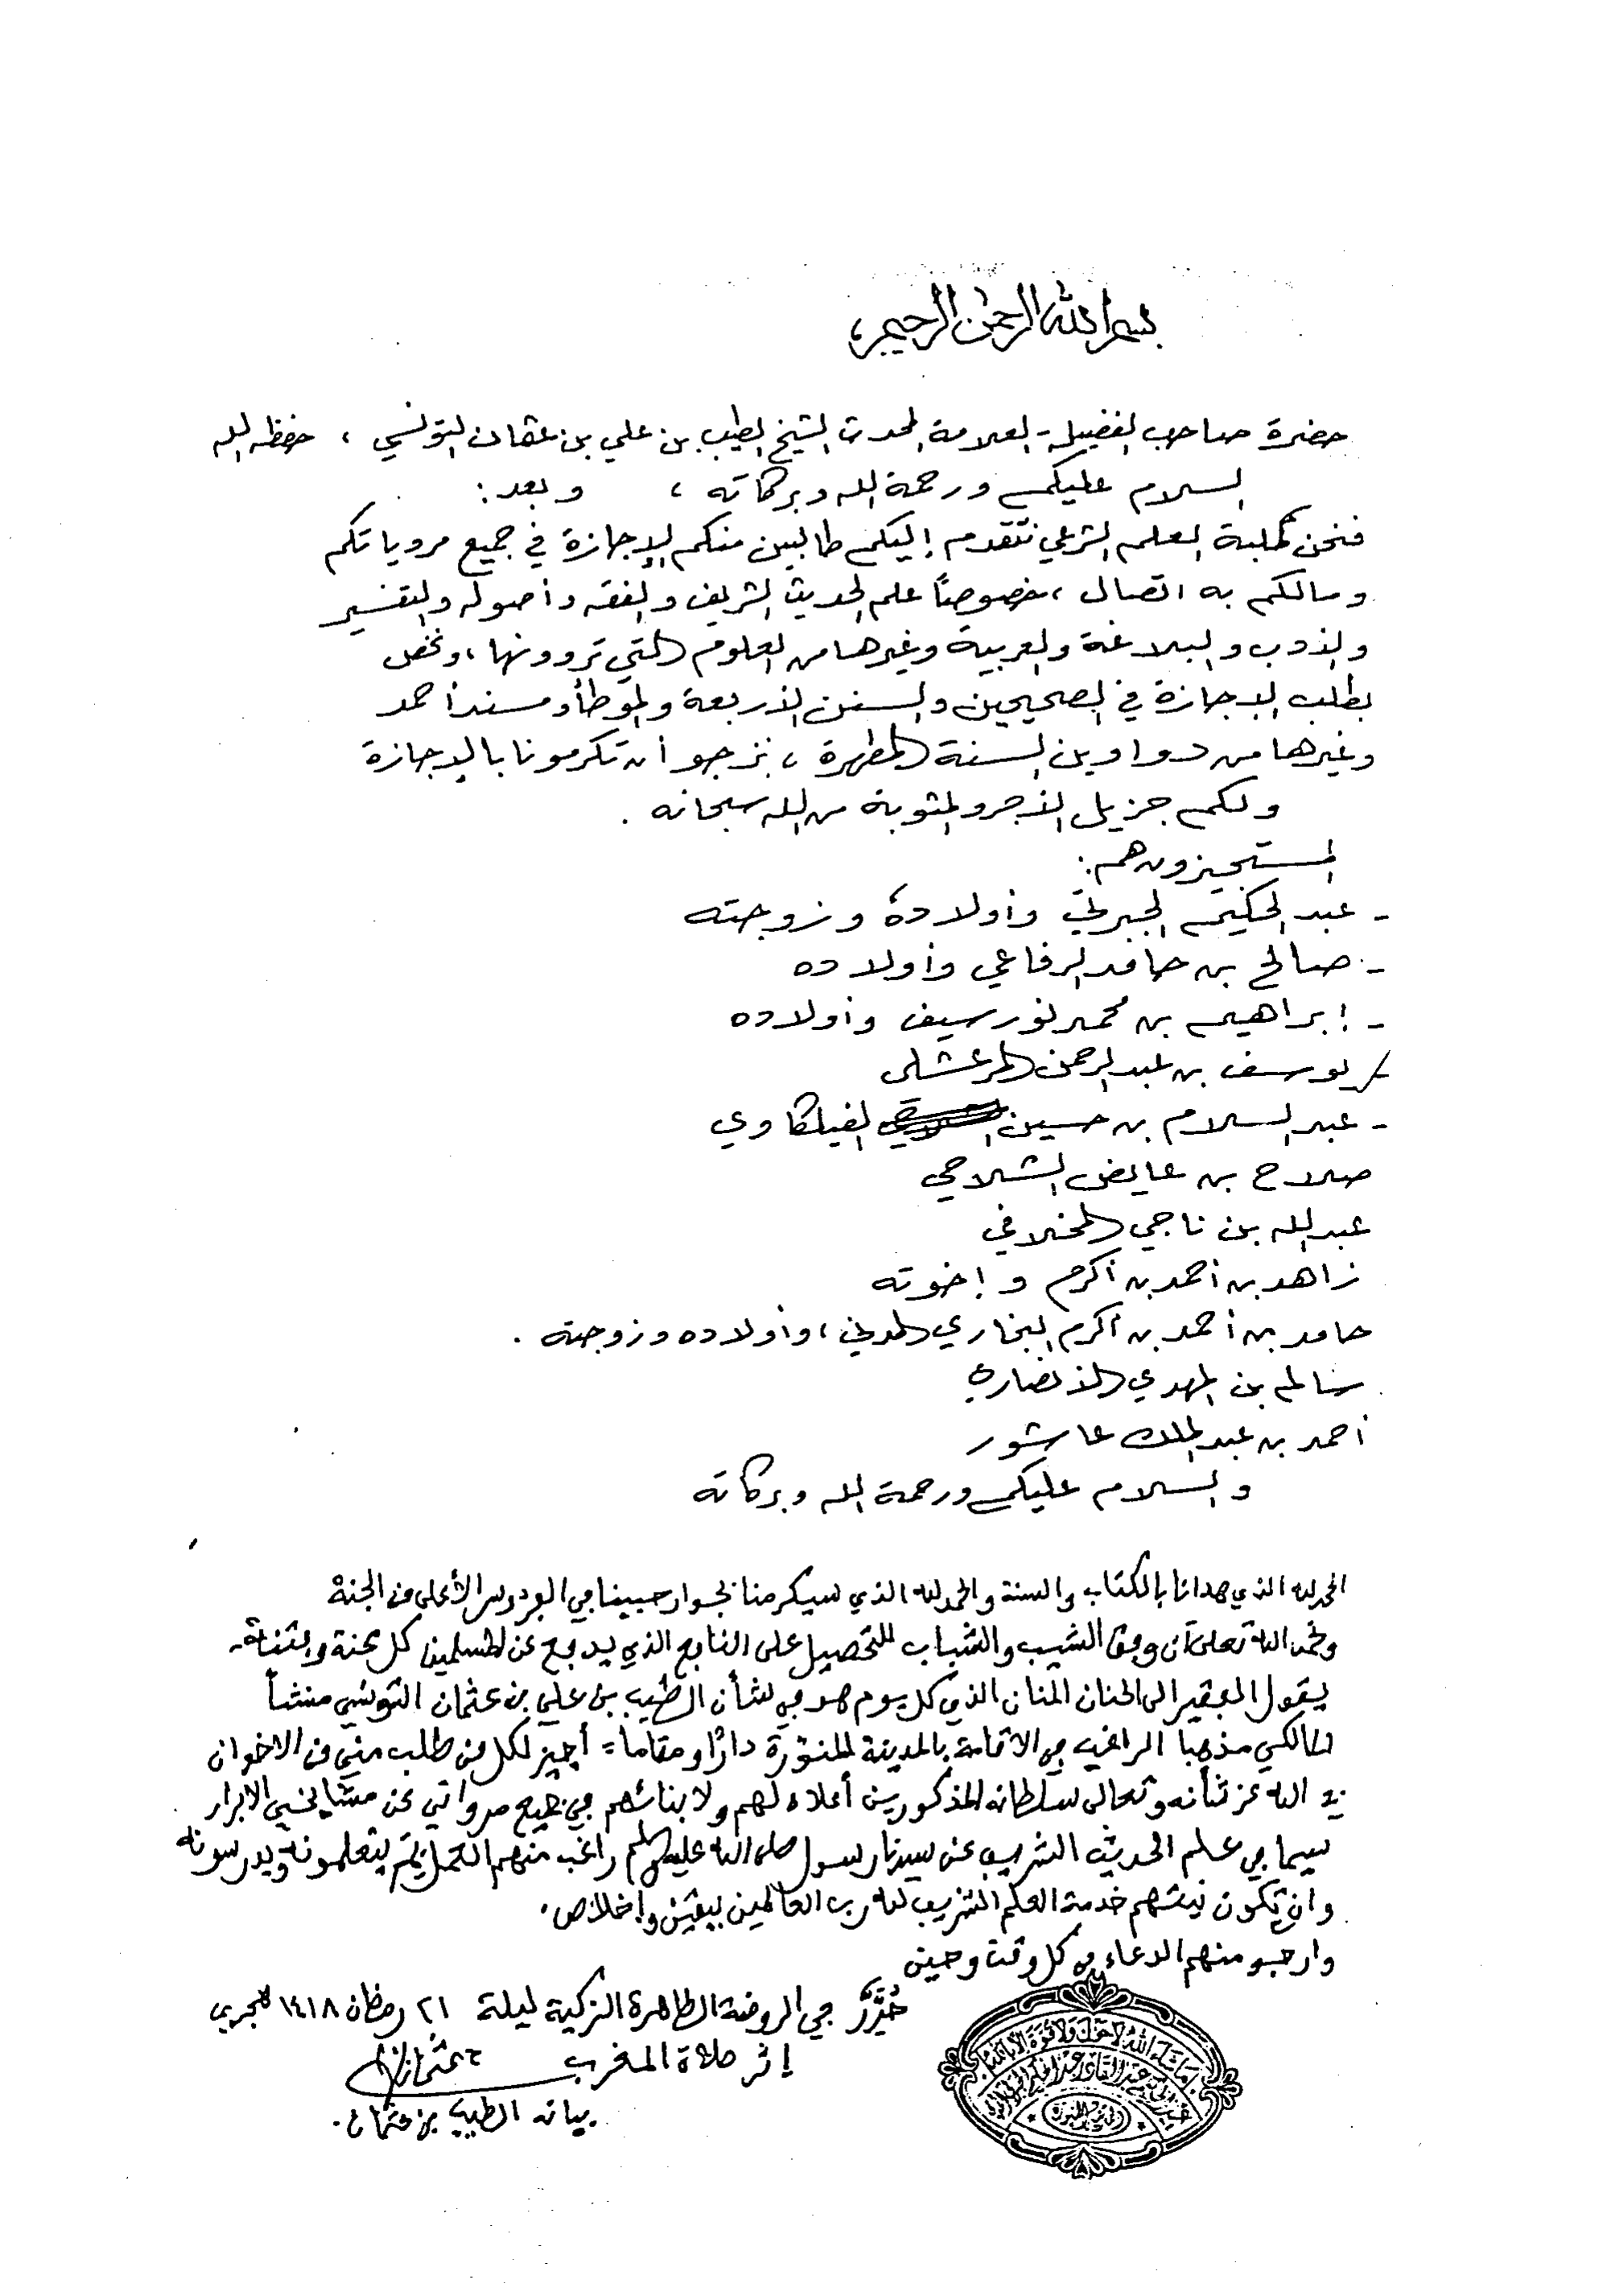 بسم الله الرحمن الرحيم
حضرة صاحب الفضيلة العلامة المحدث الشيخ الطيب بن علي بن عثمان التونسي ، حفظه الله
السلام عليكم ورحمة الله وبركاته ، وبعد :
فنحن طلبة العلم الشرعي نتقدم إليكم طالبين منكم الإجازة في جميع مروياتكم
ومالكم به اتصال ، خصوصاً علم الحديث الشريف والفقه وأصوله والتفسير
والأدب والبلاغة والعربية وغيرها من العلوم التي تروونها ، ونخص
بطلب الإجازة في الصحيحين والسنن الأربعة والموطأ ومسند أحمد
وغيرها من دواوين السنة المطهرة ، نرجو أن تكرمونا بالإجازة
ولكم جزيل الأجر والمثوبة من الله سبحانه .
المستجيزون هم :
- عبد الحكيم الجبرتي وأولاده وزوجته
- صالح بن حامد الرفاعي وأولاده
- إبراهيم بن محمد نور سيف وأولاده
- يوسف بن عبد الرحمن المرعشلي
- عبد السلام بن حسين الفيلكاوي
صلاح بن عايض الشلاحي
عبد الله بن ناجي المخلافي
زاهد بن أحمد بن أكرم وإخوته
حامد بن أحمد بن أكرم البخاري المدني ، وأولاده وزوجته .
سالم بن المهدي الأنصاري
أحمد بن عبد الملك عاشور
والسلام عليكم ورحمة الله وبركاته
الحمد لله الذي هدانا بالكتاب والسنة والحمد لله الذي سيكرمنا بجوار حبيبنا في الفردوس الأعلى من الجنة
ونحمد الله تعلى أن وفق الشيب والشباب للتحصيل على النافع الذي يدفع عن المسلمين كل محنة وفتنة
يقول الفقير الى الحنان المنان الذي كل يوم هو في شأن الطيب بن علي بن عثمان التونسي منشأ
المالكي مذهبا الراغب في الاقامة بالمدينة المنورة دارا ومقاما = أجيز لكل من طلب مني من الاخوان
في الله عز شأنه وتعالى سلطانه المذكورين أعلاه لهم ولابنائهم في جميع مرواتي عن مشايخي الابرار
سيما في علم الحديث الشريف عن سيدنا رسول صلى الله عليه وسلم راغب منهم العمل بما يتعلمونه ويدرسونه
وان تكون نيتهم خدمة العلم الشريف لله رب العالمين بيقين وإخلاص .
وارجو منهم الدعاء في كل وقت وحين
حُرِّرَ في الروضة الطاهرة الزكية ليلة ٢١ رمضان ١٤١٨ هجري
إثر صلاة المغرب
بيانه الطيب بن عثمان .
ما شاء الله لا حول ولا قوة الا بالله